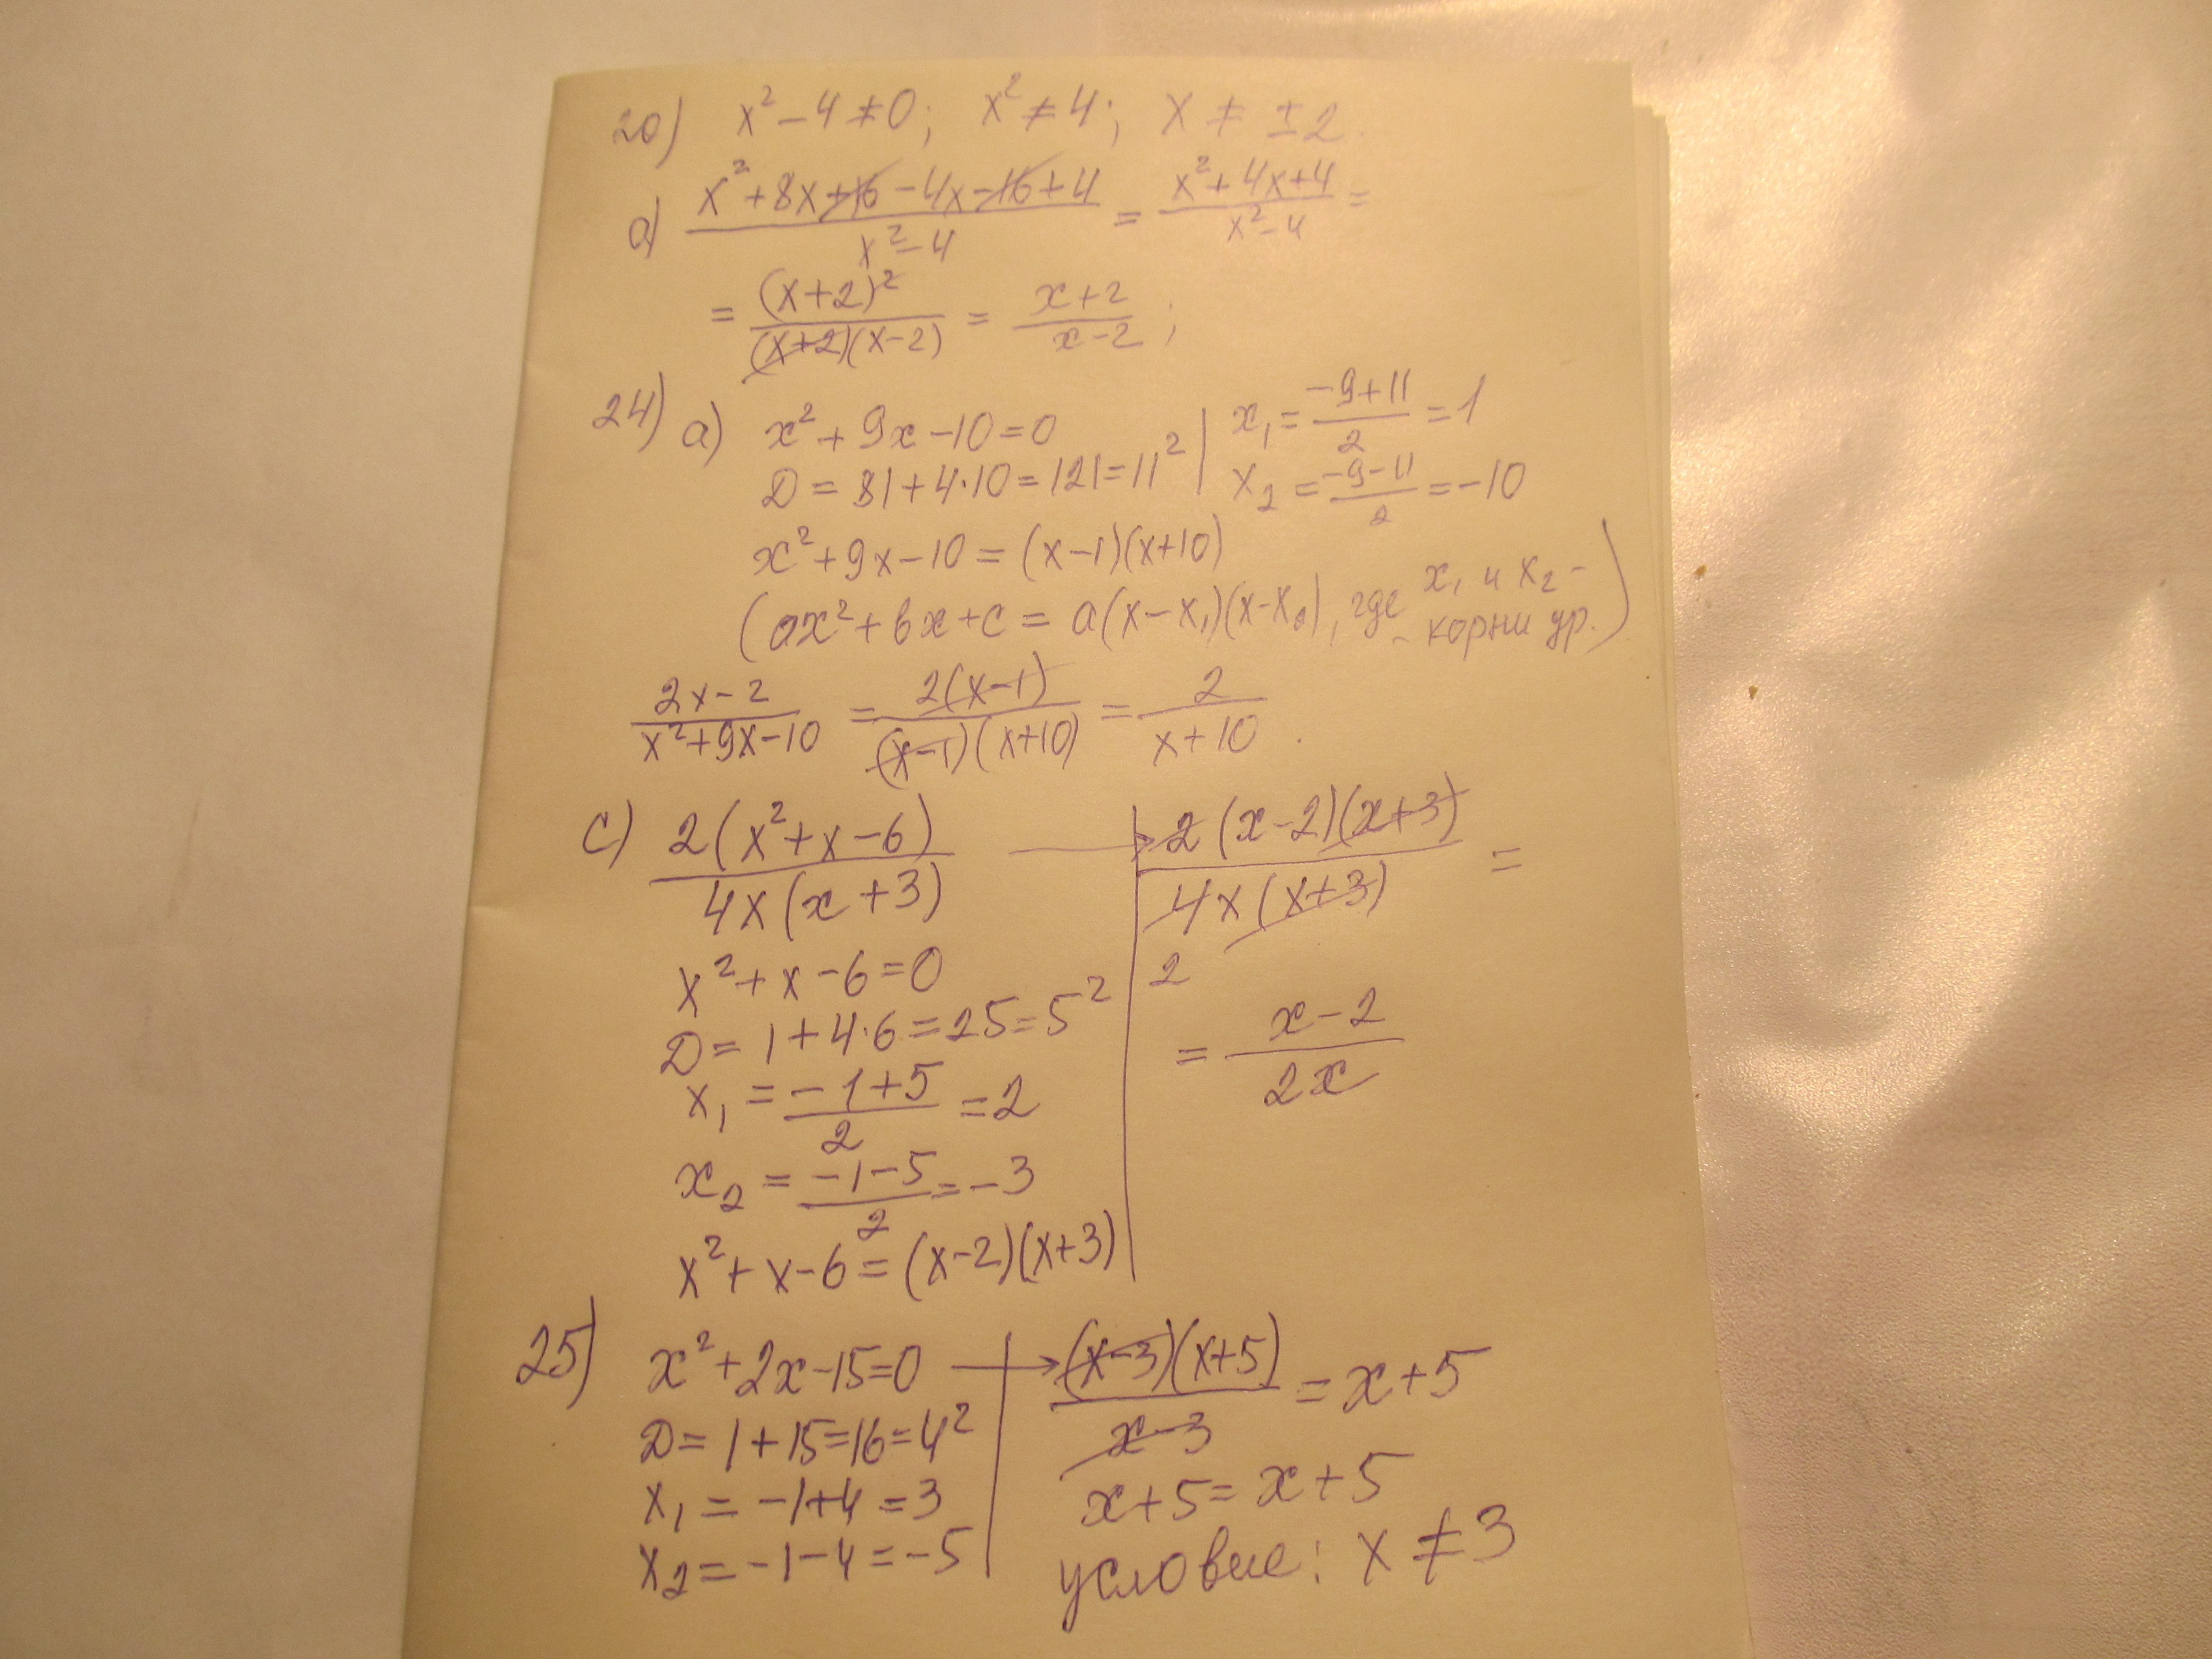 20) x² – 4 ≠ 0; x² ≠ 4; x ≠ ±2.
a) (x² + 8x + 16 – 4x – 16 + 4)/(x² – 4) = (x² + 4x + 4)/(x² – 4) =
= (x+2)²/((x+2)(x–2)) = (x+2)/(x–2);
24) a) x² + 9x – 10 = 0 | x₁ = (–9+11)/2 = 1
D = 81 + 4·10 = 121 = 11² | x₂ = (–9–11)/2 = –10
x² + 9x – 10 = (x–1)(x+10)
(ax² + bx + c = a(x – x₁)(x – x₂), где x₁ и x₂ –
– корни ур.)
(2x – 2)/(x² + 9x – 10) = 2(x–1)/((x–1)(x+10)) = 2/(x+10).
c) 2(x² + x – 6)/(4x(x + 3)) → 2(x–2)(x+3)/(4x(x+3)) =
2
= (x–2)/(2x)
x² + x – 6 = 0
D = 1 + 4·6 = 25 = 5²
x₁ = (–1+5)/2 = 2
x₂ = (–1–5)/2 = –3
x² + x – 6 = (x–2)(x+3)
25) x² + 2x – 15 = 0 → (x–3)(x+5)/(x–3) = x+5
D = 1 + 15 = 16 = 4²
x₁ = –1+4 = 3
x₂ = –1–4 = –5
x+5 = x+5
условие: x ≠ 3